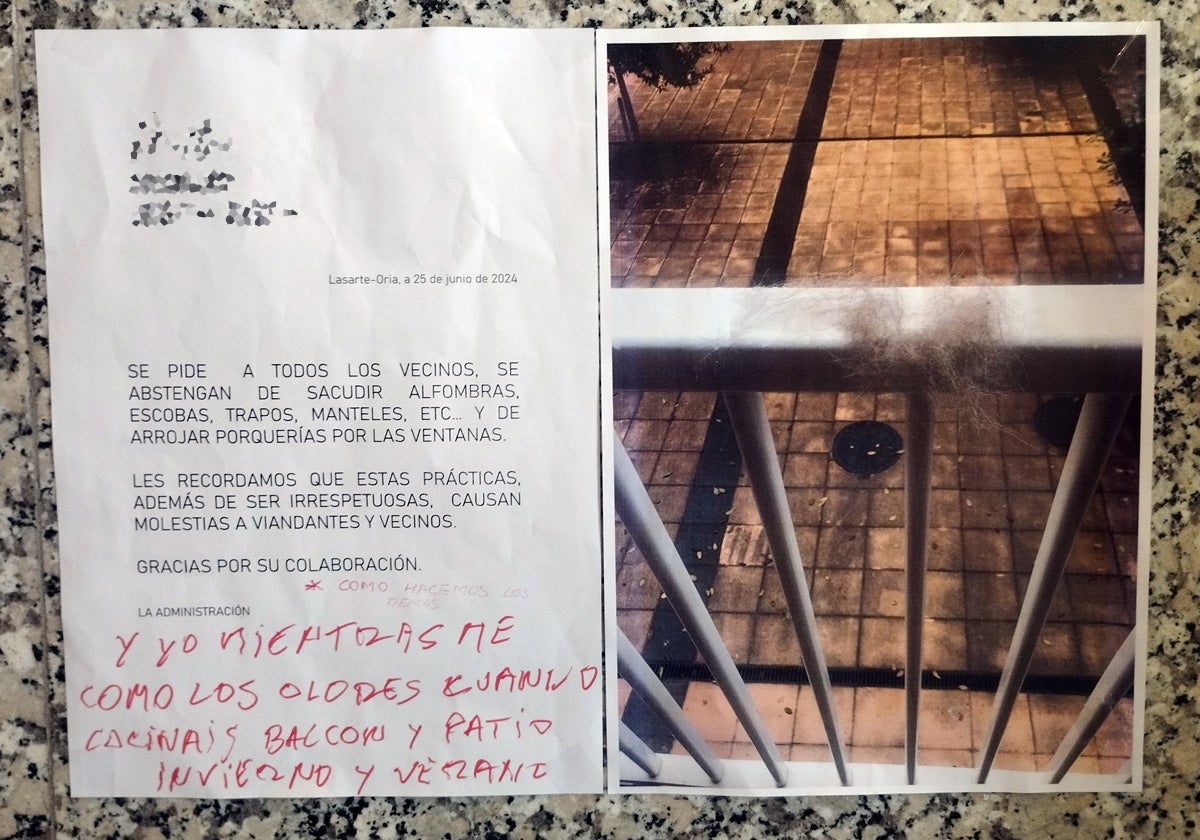 Lasarte-Oria, a 25 de junio de 2024
SE PIDE A TODOS LOS VECINOS, SE
ABSTENGAN DE SACUDIR ALFOMBRAS,
ESCOBAS, TRAPOS, MANTELES, ETC... Y DE
ARROJAR PORQUERÍAS POR LAS VENTANAS.
LES RECORDAMOS QUE ESTAS PRÁCTICAS,
ADEMÁS DE SER IRRESPETUOSAS, CAUSAN
MOLESTIAS A VIANDANTES Y VECINOS.
GRACIAS POR SU COLABORACIÓN.
* COMO HACEMOS LOS
DEMÁS
LA ADMINISTRACIÓN
Y YO MIENTRAS ME
COMO LOS OLORES CUANDO
COCINAIS BALCON Y PATIO
INVIERNO Y VERANO